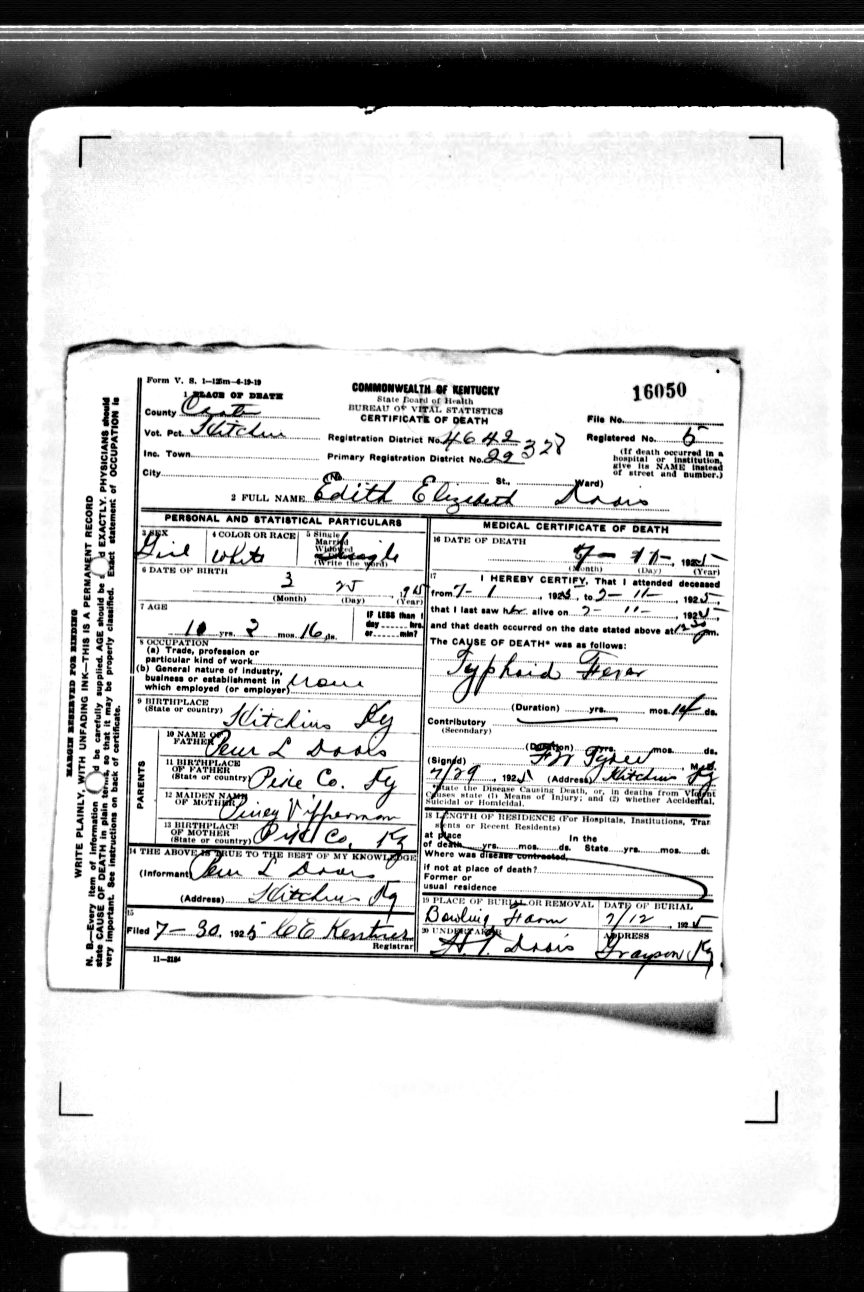 Form V. S. 1—125m—6-19-19
1 PLACE OF DEATH
COMMONWEALTH OF KENTUCKY
State Board of Health
BUREAU OF VITAL STATISTICS
CERTIFICATE OF DEATH
16050
County Carter
Vot. Pct. Hitchins
Inc. Town
City
Registration District No. 4642
Primary Registration District No. 29 328
File No.
Registered No. 6
(If death occurred in a hospital or institution, give its NAME instead of street and number.)
(No. St., Ward)
2 FULL NAME Edith Elizabeth Davis
PERSONAL AND STATISTICAL PARTICULARS
3 SEX Girl
4 COLOR OR RACE White
5 Single Married Widowed
Single
(Write the word)
6 DATE OF BIRTH 3 25
(Month) (Day) (Year)
7 AGE
10 yrs. 3 mos. 16 ds.
IF LESS than 1 day hrs. or min?
8 OCCUPATION
(a) Trade, profession or particular kind of work
(b) General nature of industry, business or establishment in which employed (or employer) None
9 BIRTHPLACE
(State or country) Hitchins Ky
PARENTS
10 NAME OF FATHER L Davis
11 BIRTHPLACE OF FATHER
(State or country) Pike Co. Ky
12 MAIDEN NAME OF MOTHER Piney Vipperman
13 BIRTHPLACE OF MOTHER
(State or country) Pike Co, Ky
14 THE ABOVE IS TRUE TO THE BEST OF MY KNOWLEDGE
(Informant) L Davis
(Address) Hitchins Ky
15
Filed 7-30, 1925 C E Kentner
Registrar
11—3184
MEDICAL CERTIFICATE OF DEATH
16 DATE OF DEATH
7 - 11 -, 1925
(Month) (Day) (Year)
17 I HEREBY CERTIFY, That I attended deceased
from 7- 1, 1925, to 7- 11-, 1925
that I last saw her alive on 7- 11-, 1925
and that death occurred on the date stated above at m.
The CAUSE OF DEATH* was as follows:
Typhoid Fever
(Duration) yrs. mos. 14 ds.
Contributory
(Secondary)
(Duration) yrs. mos. ds.
(Signed) M.D.
7/29, 1925 (Address) Hitchins Ky
*State the Disease Causing Death, or, in deaths from Violent Causes state (1) Means of Injury; and (2) whether Accidental, Suicidal or Homicidal.
18 LENGTH OF RESIDENCE (For Hospitals, Institutions, Transients or Recent Residents)
At place of death yrs. mos. ds. In the State yrs. mos. ds.
Where was disease contracted,
if not at place of death?
Former or usual residence
19 PLACE OF BURIAL OR REMOVAL
Bowling Farm
DATE OF BURIAL
7/12, 1925
20 UNDERTAKER
H. T. Davis
ADDRESS
Grayson Ky
MARGIN RESERVED FOR BINDING
WRITE PLAINLY, WITH UNFADING INK—THIS IS A PERMANENT RECORD
N. B.—Every item of information should be carefully supplied. AGE should be stated EXACTLY. PHYSICIANS should
state CAUSE OF DEATH in plain terms, so that it may be properly classified. Exact statement of OCCUPATION is
very important. See instructions on back of certificate.